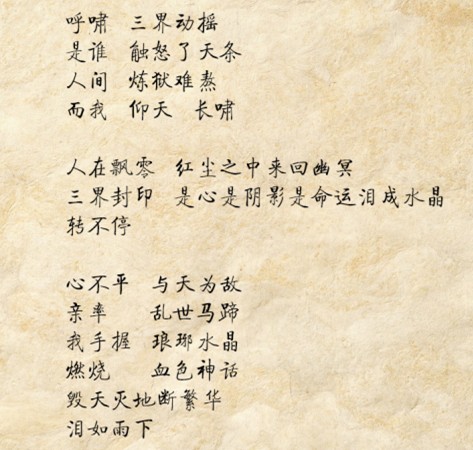 呼啸 三界动摇
是谁 触怒了天条
人间 炼狱难熬
而我 仰天 长啸
人在飘零 红尘之中来回幽冥
三界封印 是心是阴影是命运泪成水晶
转不停
心不平 与天为敌
亲率 乱世马蹄
我手握 琅琊水晶
燃烧 血色神话
毁天灭地断繁华
泪如雨下